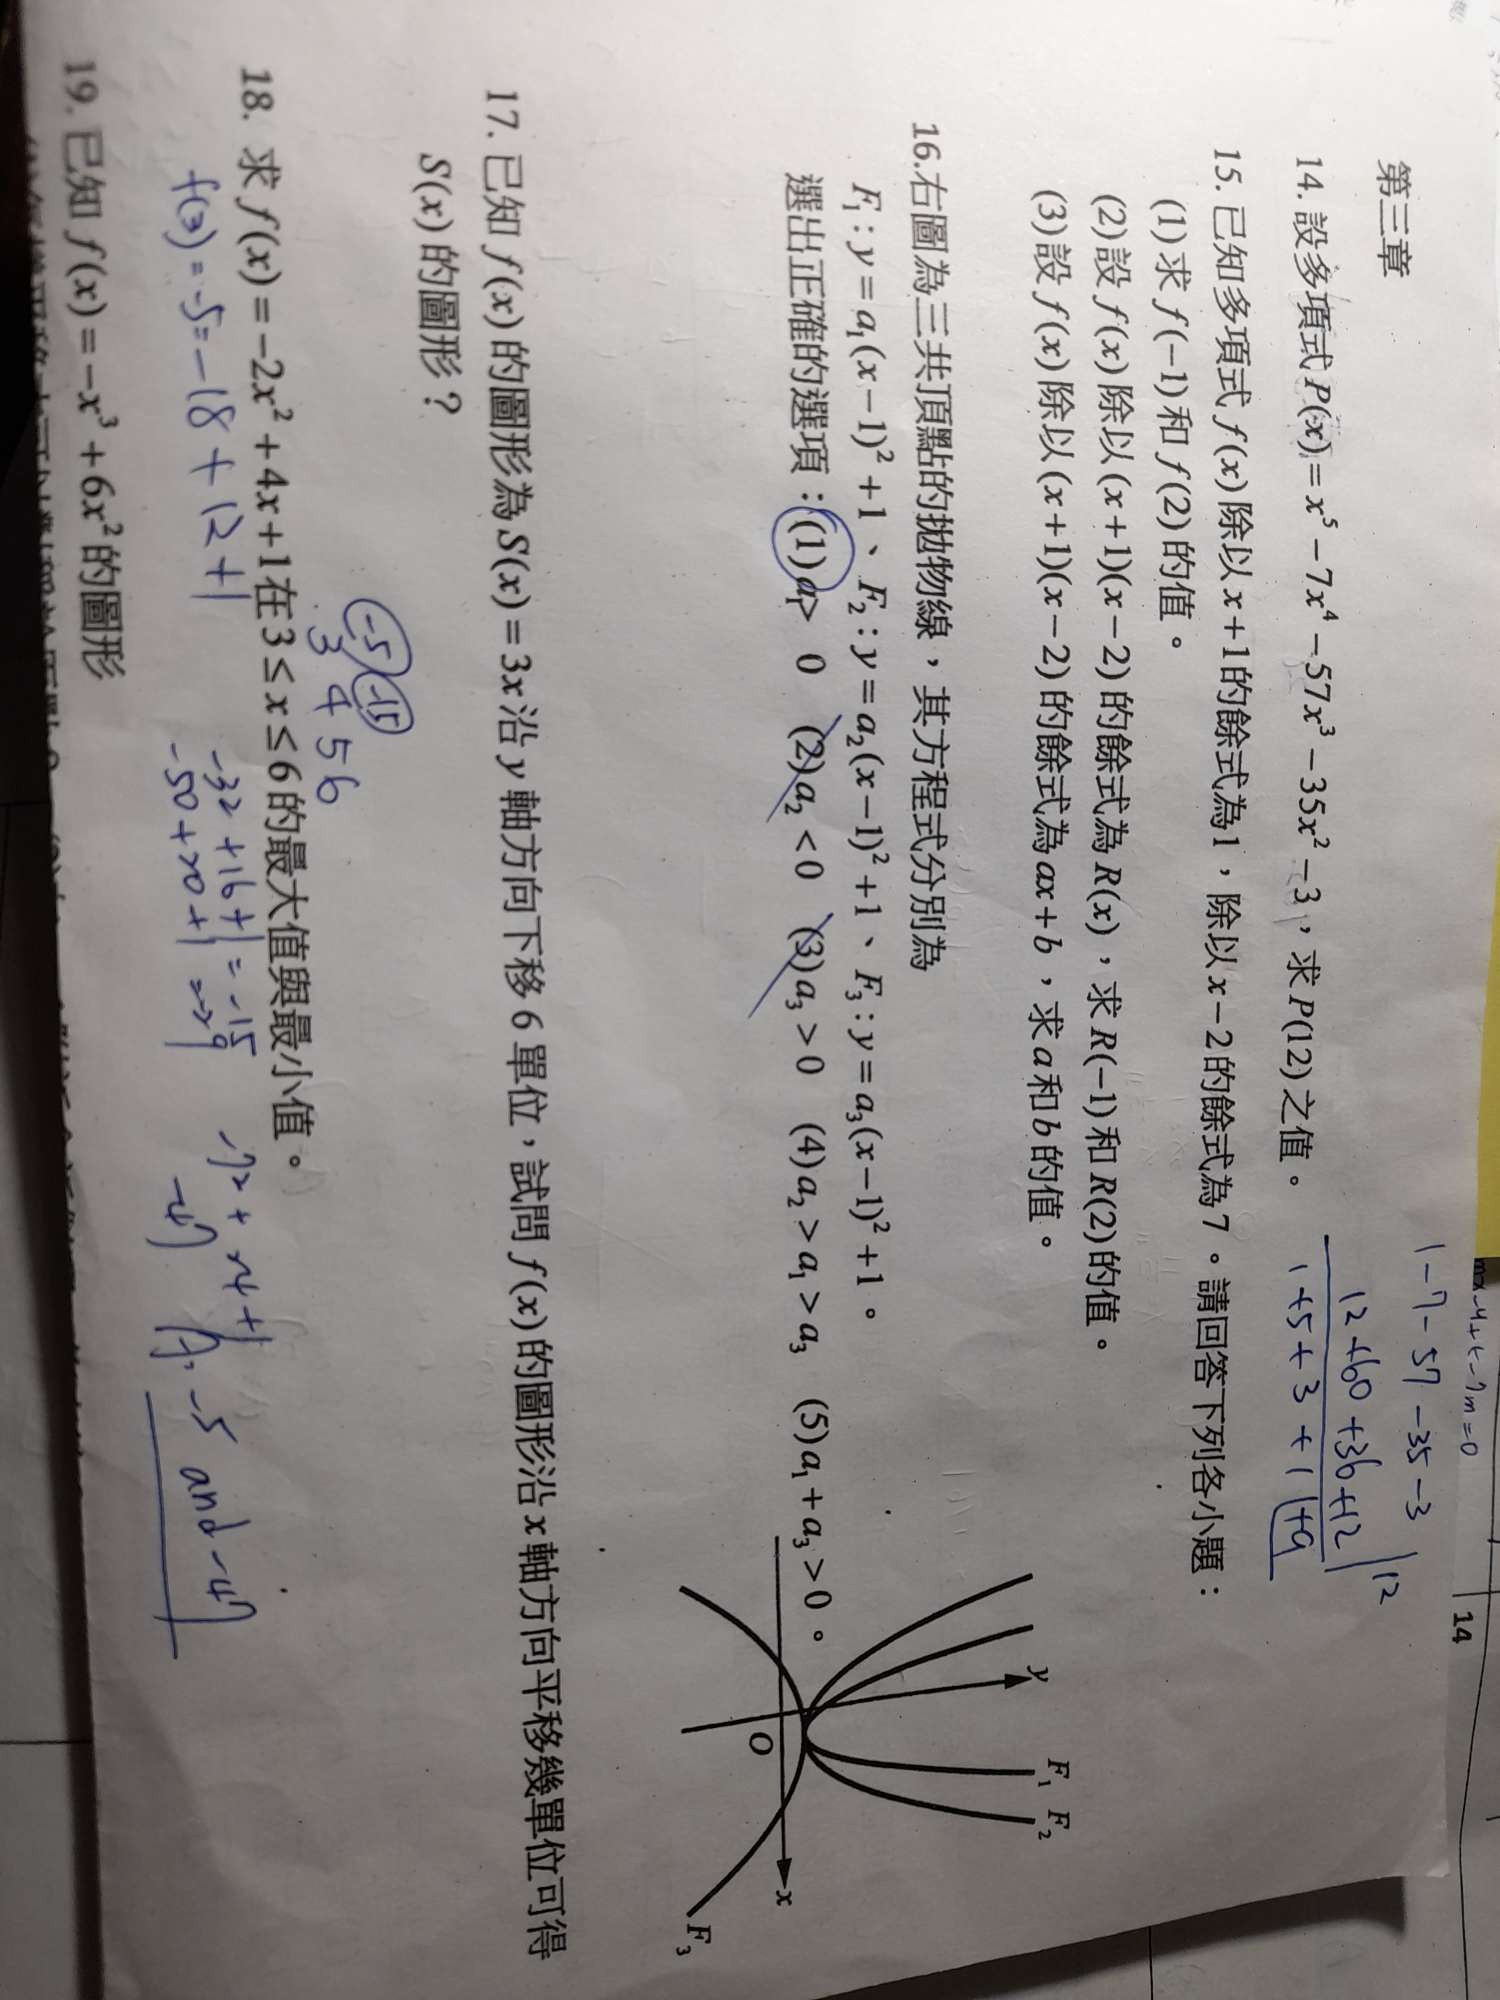 14
第三章
14. 設多項式 P(x)=x⁵−7x⁴−57x³−35x²−3，求 P(12) 之值。
1 -7 -57 -35 -3 | 12
12 +60 +36 +12
1 +5 +3 +1 | +9
15. 已知多項式 f(x) 除以 x+1 的餘式為 1，除以 x−2 的餘式為 7。請回答下列各小題：
(1) 求 f(−1) 和 f(2) 的值。
(2) 設 f(x) 除以 (x+1)(x−2) 的餘式為 R(x)，求 R(−1) 和 R(2) 的值。
(3) 設 f(x) 除以 (x+1)(x−2) 的餘式為 ax+b，求 a 和 b 的值。
16. 右圖為三共頂點的拋物線，其方程式分別為
F₁：y=a₁(x−1)²+1、F₂：y=a₂(x−1)²+1、F₃：y=a₃(x−1)²+1。
選出正確的選項：(1) a₁> 0 (2) a₂<0 (3) a₃>0 (4) a₂>a₁>a₃ (5) a₁+a₃>0。
y
F₁ F₂
O
x
F₃
17. 已知 f(x) 的圖形為 S(x)=3x 沿 y 軸方向下移 6 單位，試問 f(x) 的圖形沿 x 軸方向平移幾單位可得
S(x) 的圖形？
-5 -15
3 4 5 6
18. 求 f(x)=−2x²+4x+1 在 3≤x≤6 的最大值與最小值。
f(3) = -5 = -18 + 12 + 1
-32 +16 +1 = -15
-50 +20 +1 = -29
-72 + 24 + 1
-47
A: -5 and -47
19. 已知 f(x)=−x³+6x² 的圖形